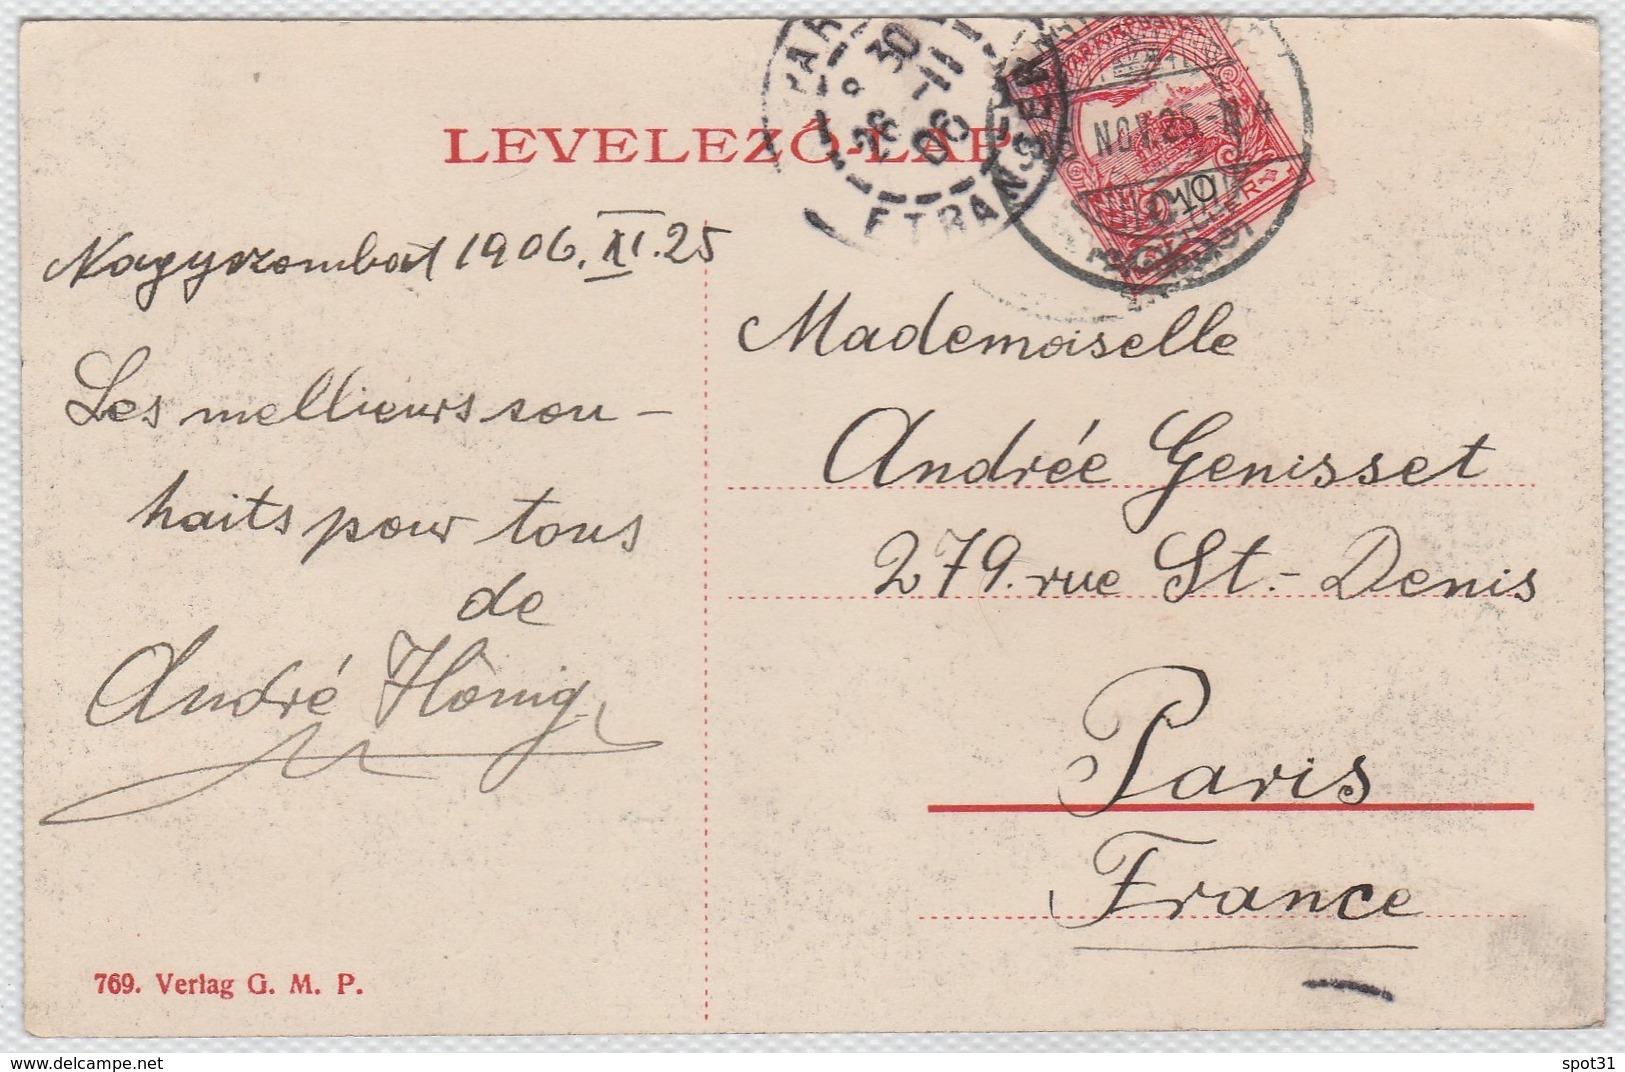 LEVELEZŐ-LAP
PAR
8 30
26 -11
06
ETRANGER
MAGYAR KIR. POSTA
10
906 NOV. 25-N 4
Nagyszombat 1906. XI. 25
Les mellieurs sou-
haits pour tous
de
André Hönig
Mademoiselle
Andrée Genisset
279. rue St.- Denis
Paris
France
769. Verlag G. M. P.
www.delcampe.net
spot31